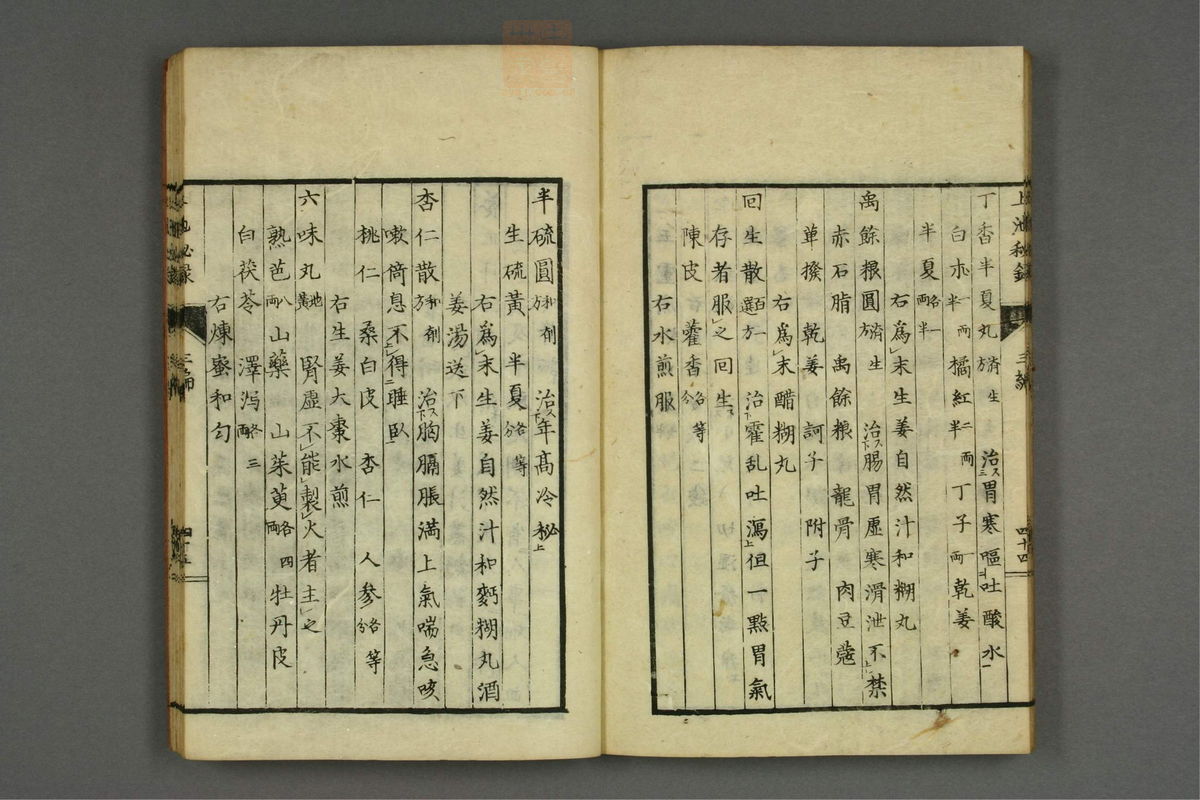 丁香半夏丸 済生方 治胃寒嘔吐酸水
白朮一両半 橘紅二両半 丁子一両 乾姜
半夏各一両半
右爲末生姜自然汁和糊丸
禹餘粮圓 済生方 治腸胃虚寒滑泄不禁
赤石脂 禹餘粮 龍骨 肉豆蔲
蓽撥 乾姜 訶子 附子
右爲末醋糊丸
回生散 百一選方 治霍乱吐瀉但一點胃氣
存者服之回生
陳皮 藿香各等分
右水煎服
上池秘録 三編 四十四
半硫圓 和剤方 治年高冷秘
生硫黃 半夏各等分
右爲末生姜自然汁和麪糊丸酒
姜湯送下
杏仁散 和剤方 治胸膈脹満上氣喘急咳
嗽倚息不得睡臥
桃仁 桑白皮 杏仁 人參各等分
右生姜大棗水煎
六味丸 腎虚不能製火者主之
熟芭八両 山藥 山茱萸各四両 牡丹皮
白茯苓 澤泻各三両
右煉蜜和匀